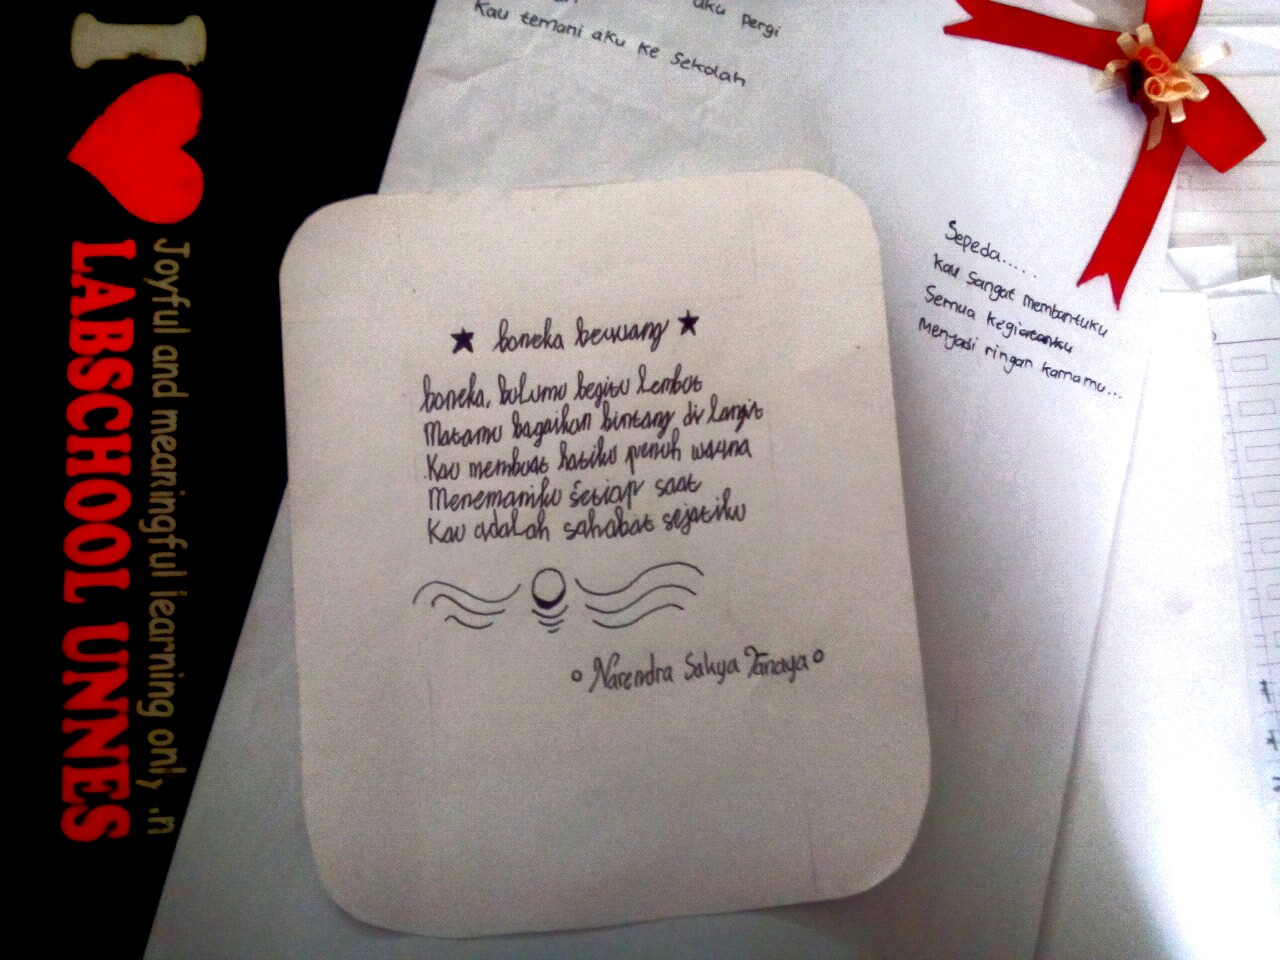 I
LABSCHOOL UNNES
Joyful and meaningful learning only .n
aku pergi
Kau temani aku ke sekolah
Sepeda.....
Kau sangat membantuku
Semua kegiatanku
Menjadi ringan karnamu...
boneka beruang
boneka, bulumu begitu lembut
Matamu bagaikan bintang di langit
Kau membuat hatiku penuh warna
Menemaniku setiap saat
Kau adalah sahabat sejatiku
Narendra Sakya Tanaya